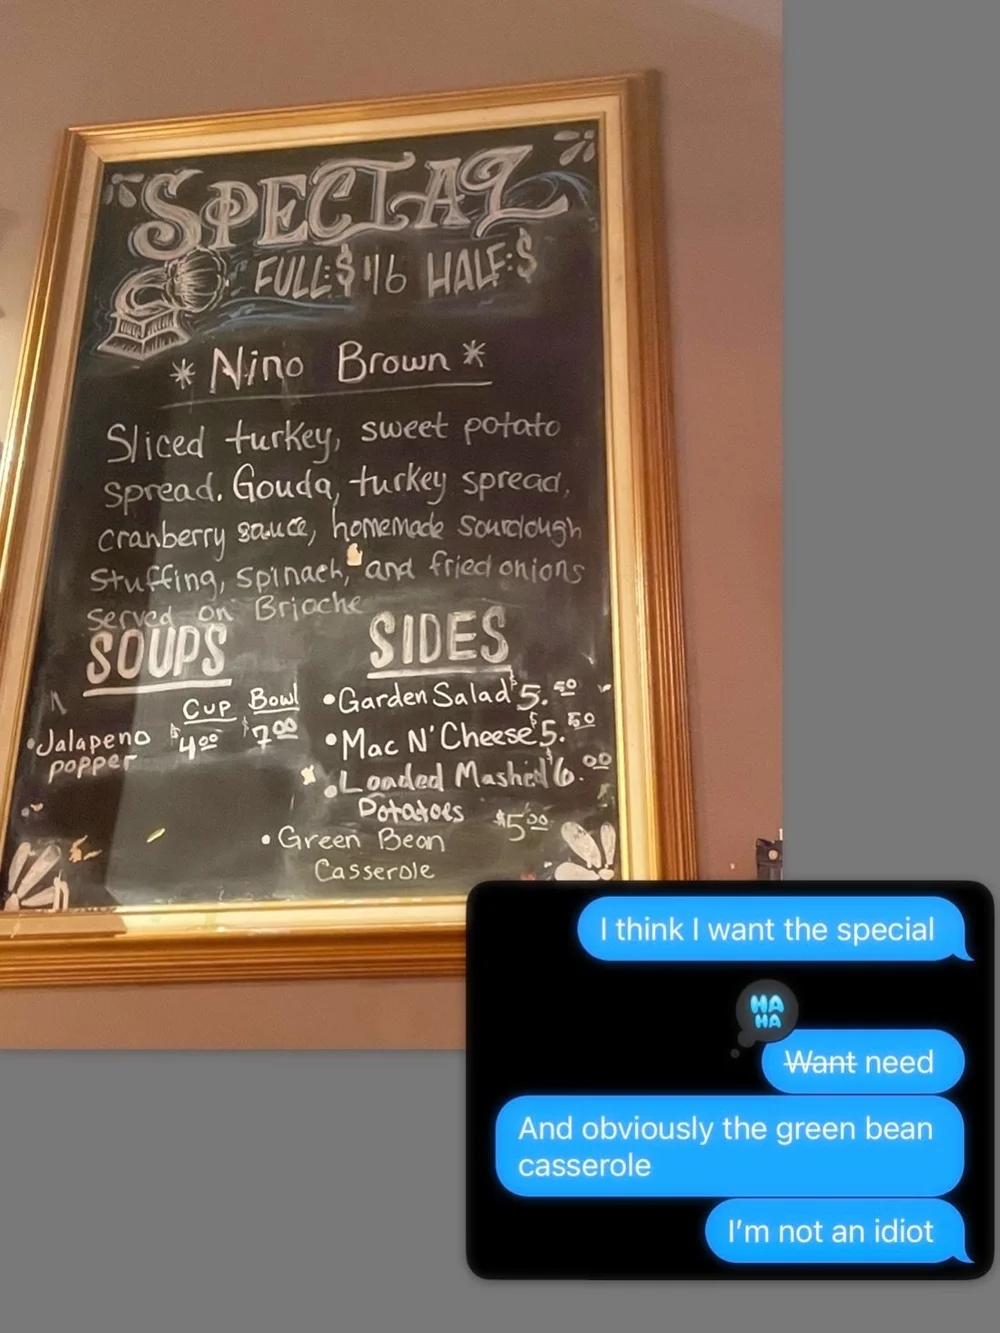 SPECIAL
FULL:$16 HALF:$
* Nino Brown *
Sliced turkey, sweet potato
spread. Gouda, turkey spread,
cranberry sauce, homemade sourdough
stuffing, spinach, and fried onions
served on Brioche
SOUPS
Cup Bowl
•Jalapeno $4.00 $7.00
popper
SIDES
•Garden Salad $5.50
•Mac N' Cheese $5.50
•Loaded Mashed $6.00
Potatoes
•Green Bean $5.00
Casserole
I think I want the special
HA
HA
~~Want~~ need
And obviously the green bean
casserole
I'm not an idiot